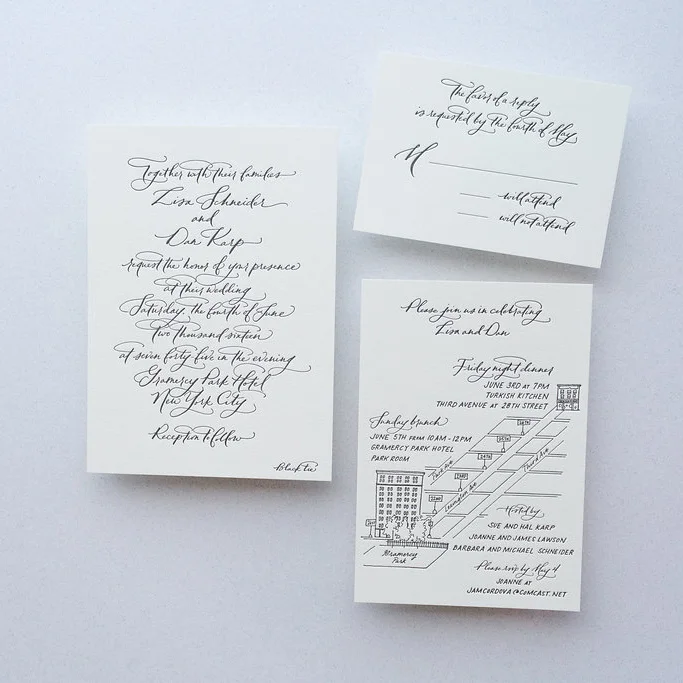 Together with their families
Lisa Schneider
and
Dan Karp
request the honor of your presence
at their wedding
Saturday, the fourth of June
two thousand sixteen
at seven forty five in the evening
Gramercy Park Hotel
New York City
Reception to follow
Black tie
The favor of a reply
is requested by the fourth of May
M
will attend
will not attend
Please join us in celebrating
Lisa and Dan
Friday night dinner
JUNE 3RD AT 7PM
TURKISH KITCHEN
THIRD AVENUE AT 28TH STREET
Sunday brunch
JUNE 5TH FROM 10AM-12PM
GRAMERCY PARK HOTEL
PARK ROOM
Park Ave
Lexington Ave
Third Ave
Gramercy
Park
Hosted by
SUE AND HAL KARP
JOANNE AND JAMES LAWSON
BARBARA AND MICHAEL SCHNEIDER
Please rsvp by May 4
JOANNE AT
JAMCORDOVA@COMCAST.NET